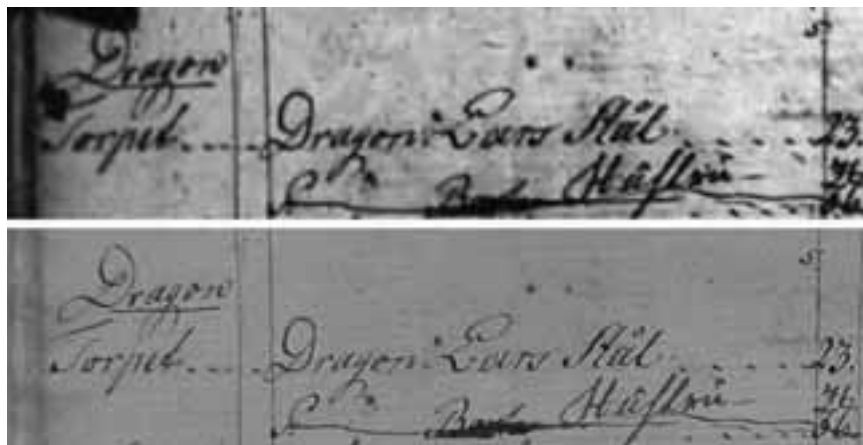 5.
Dragon
Torpet Dragon: Lars Stål 23.
Hustru
5.
Dragon
Torpet Dragon: Lars Stål 23.
Hustru